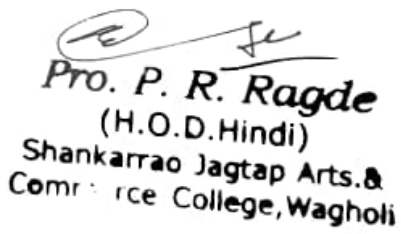 Pro. P. R. Ragde
(H.O.D.Hindi)
Shankarrao Jagtap Arts.&
College,Wagholi